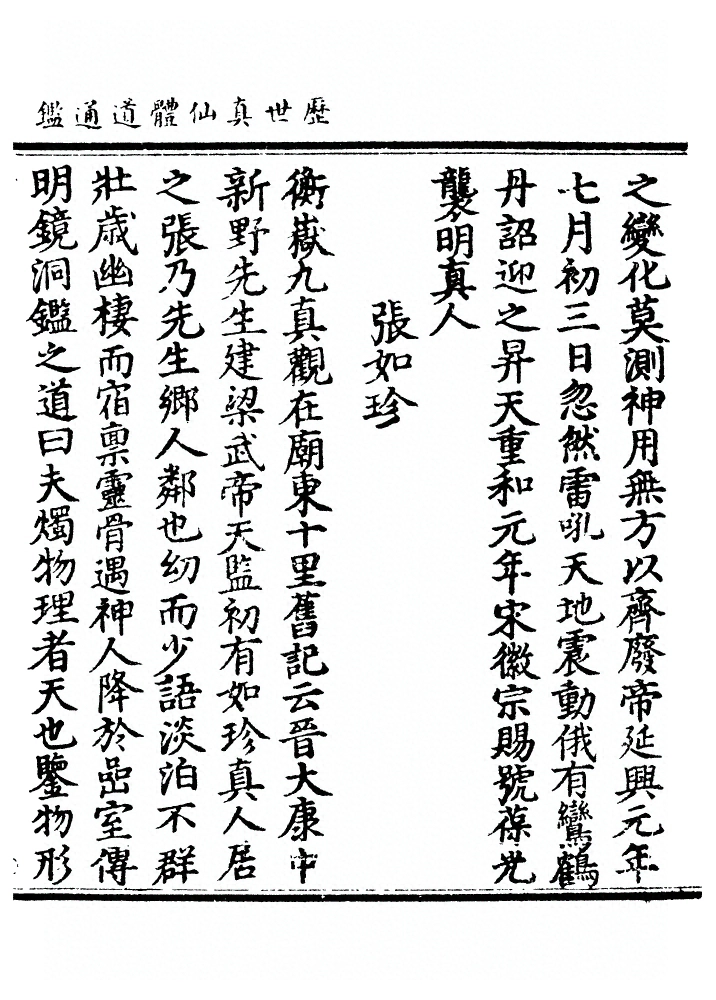 歷世真仙體道通鑑
之變化莫測神用無方以齊廢帝延興元年
七月初三日忽然雷吼天地震動俄有鸞鶴
丹詔迎之昇天重和元年宋徽宗賜號葆光
襲明真人
張如珍
衡嶽九真觀在廟東十里舊記云晉大康中
新野先生建梁武帝天監初有如珍真人居
之張乃先生鄉人鄰也幼而少語淡泊不群
壯歲幽棲而宿稟靈骨遇神人降於嵒室傳
明鏡洞鑑之道曰夫燭物理者天也鑒物形